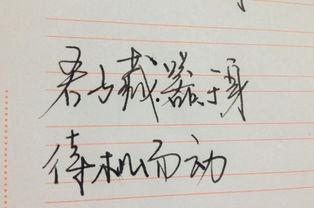 君与藏.器.于身
待机而动